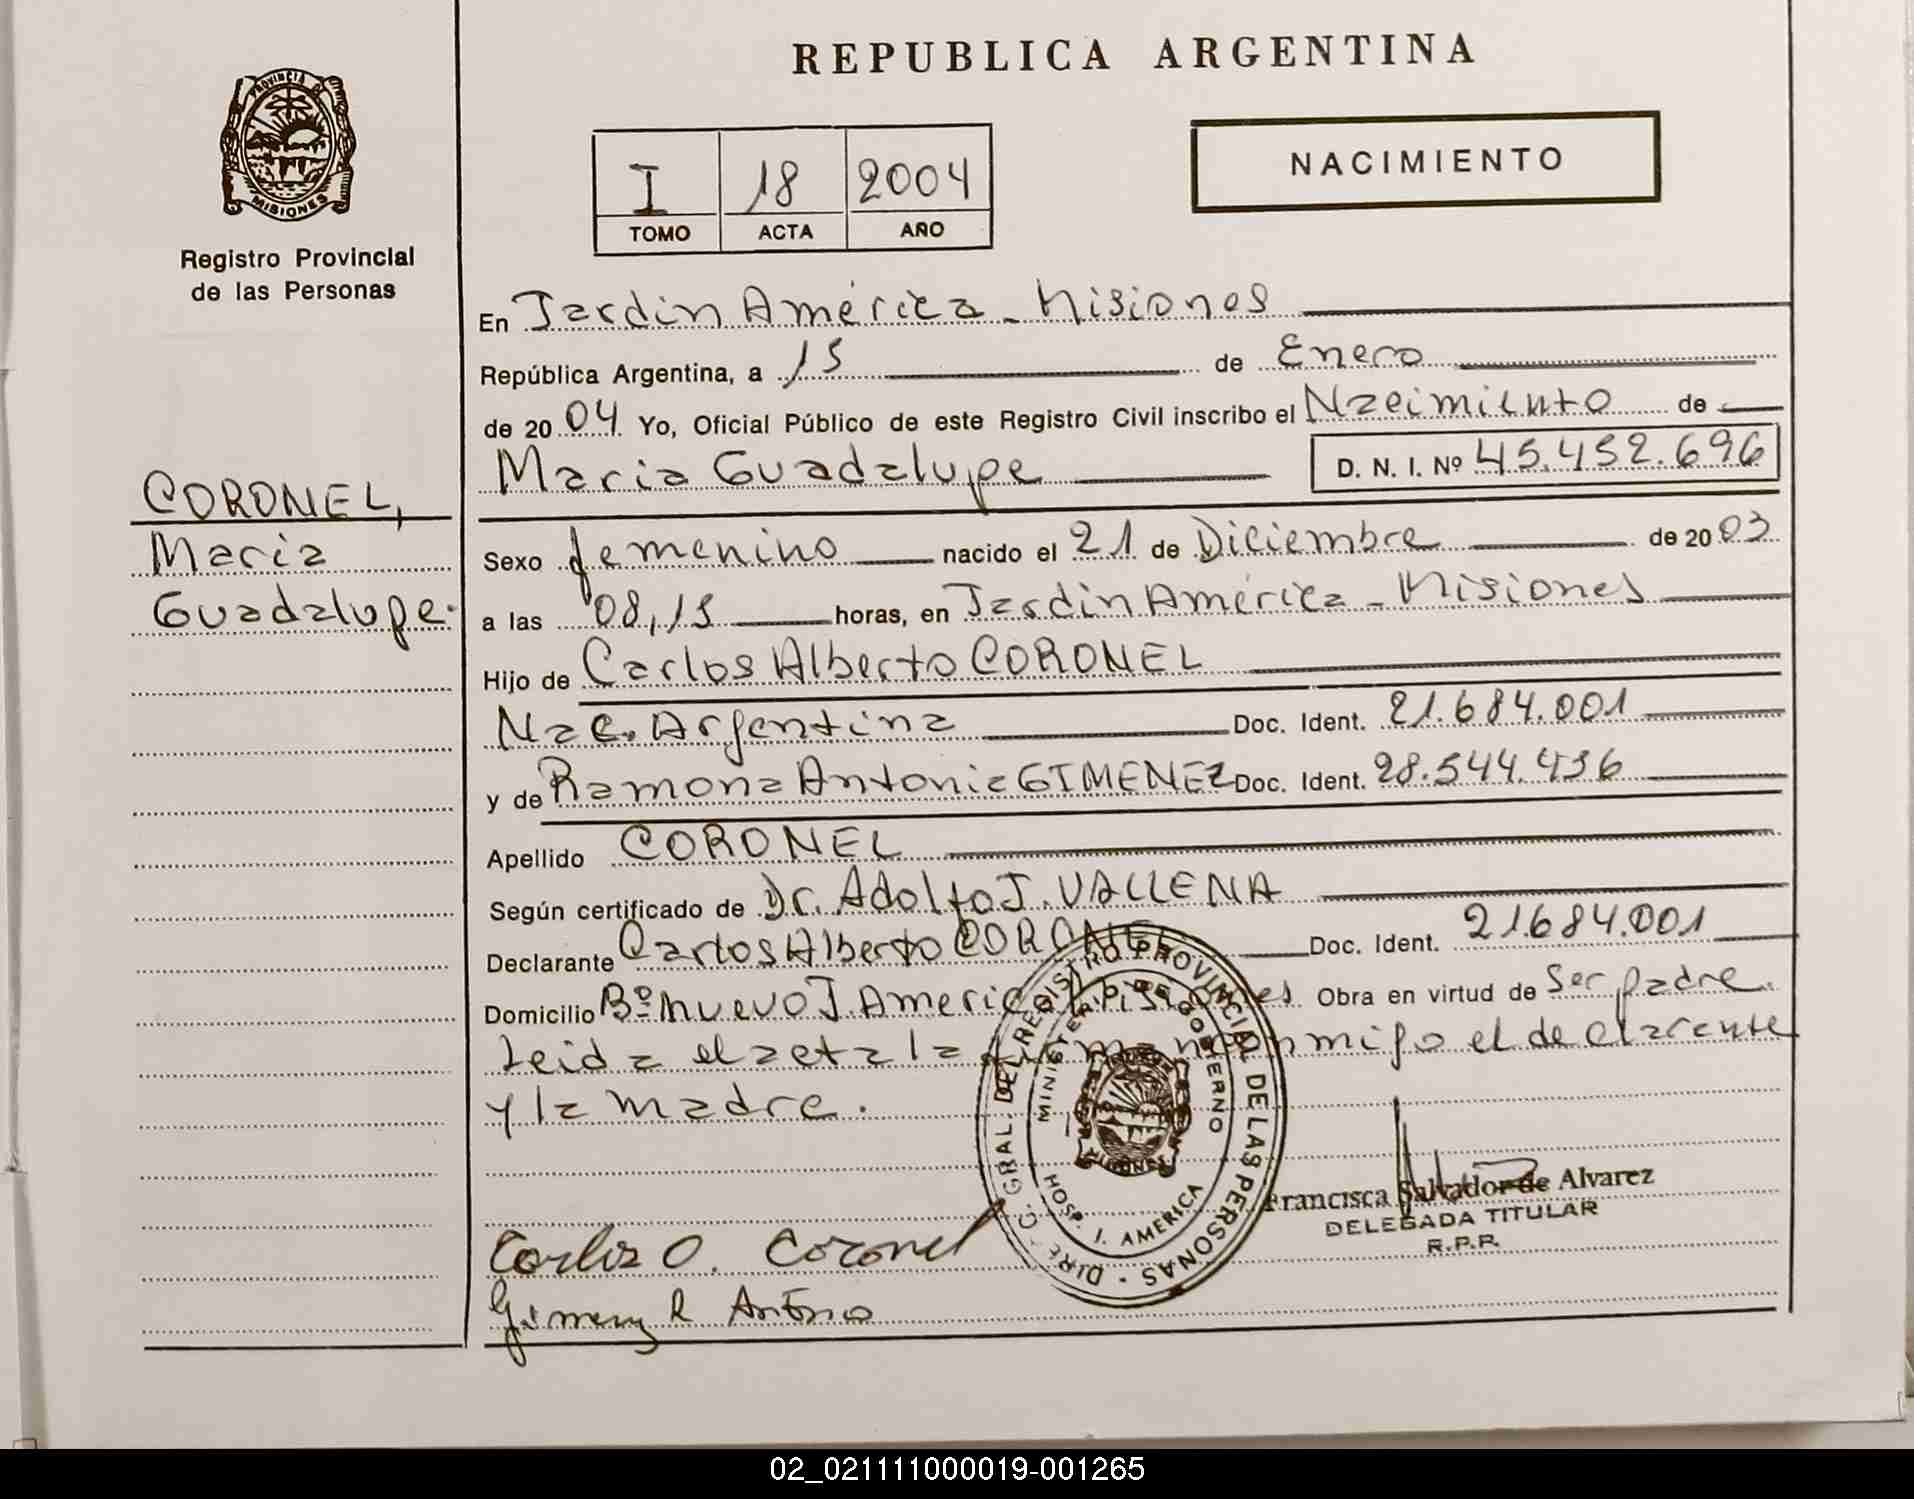 REPUBLICA ARGENTINA
PROVINCIA DE
MISIONES
Registro Provincial
de las Personas
I 18 2004
TOMO ACTA AÑO
NACIMIENTO
CORONEL,
Maria
Guadalupe.
En Jardin América - Misiones
República Argentina, a 15 de Enero
de 2004 Yo, Oficial Público de este Registro Civil inscribo el Nacimiento de
Maria Guadalupe D. N. I. Nº 45.452.696
Sexo femenino nacido el 21 de Diciembre de 2003
a las 08,15 horas, en Jardin América - Misiones
Hijo de Carlos Alberto CORONEL
Nac. Argentina Doc. Ident. 21.684.001
y de Ramona Antonia GIMENEZ Doc. Ident. 28.544.436
Apellido CORONEL
Según certificado de Dr. Adolfo J. VALLENA
Declarante Carlos Alberto CORONEL Doc. Ident. 21.684.001
Domicilio Bº nuevo J. America Misiones Obra en virtud de Ser padre.
Leida el acta la firman conmigo el declarante
y la madre.
DIREC. GRAL. DEL REGISTRO PROVINCIAL DE LAS PERSONAS
MINISTERIO DE GOBIERNO
MISIONES
HOSP. J. AMERICA
Francisca Salvador de Alvarez
DELEGADA TITULAR
R.P.P.
Carlos O. Coronel
Gimenez R Antonia
02_021111000019-001265